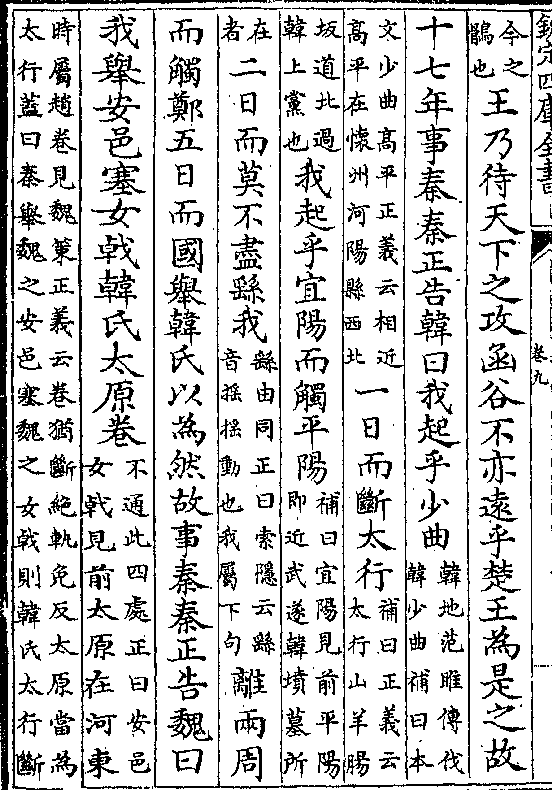 欽定四庫全書
卷九
今之鶻也王乃待天下之攻函谷不亦遠乎楚王為是之故
十七年事秦秦正告韓曰我起乎少曲韓地范睢傳伐韓少曲補曰本
文少曲髙平正義云相近髙平在懷州河陽縣西北一日而斷太行補曰正義云太行山羊腸
坂道北過韓上黨也我起乎宜陽而觸平陽補曰宜陽見前平陽即近武遂韓墳墓所
在者二日而莫不盡繇我繇由同正曰索隱云繇音揺揺動也我屬下句離兩周
而觸鄭五日而國舉韓氏以為然故事秦秦正告魏曰
我舉安邑塞女戟韓氏太原卷不通此四處正曰安邑女戟見前太原在河東
時屬趙卷見魏䇿正義云卷猶斷絶軌免反太原當為太行蓋曰秦舉魏之安邑塞魏之女戟則韓氏太行斷